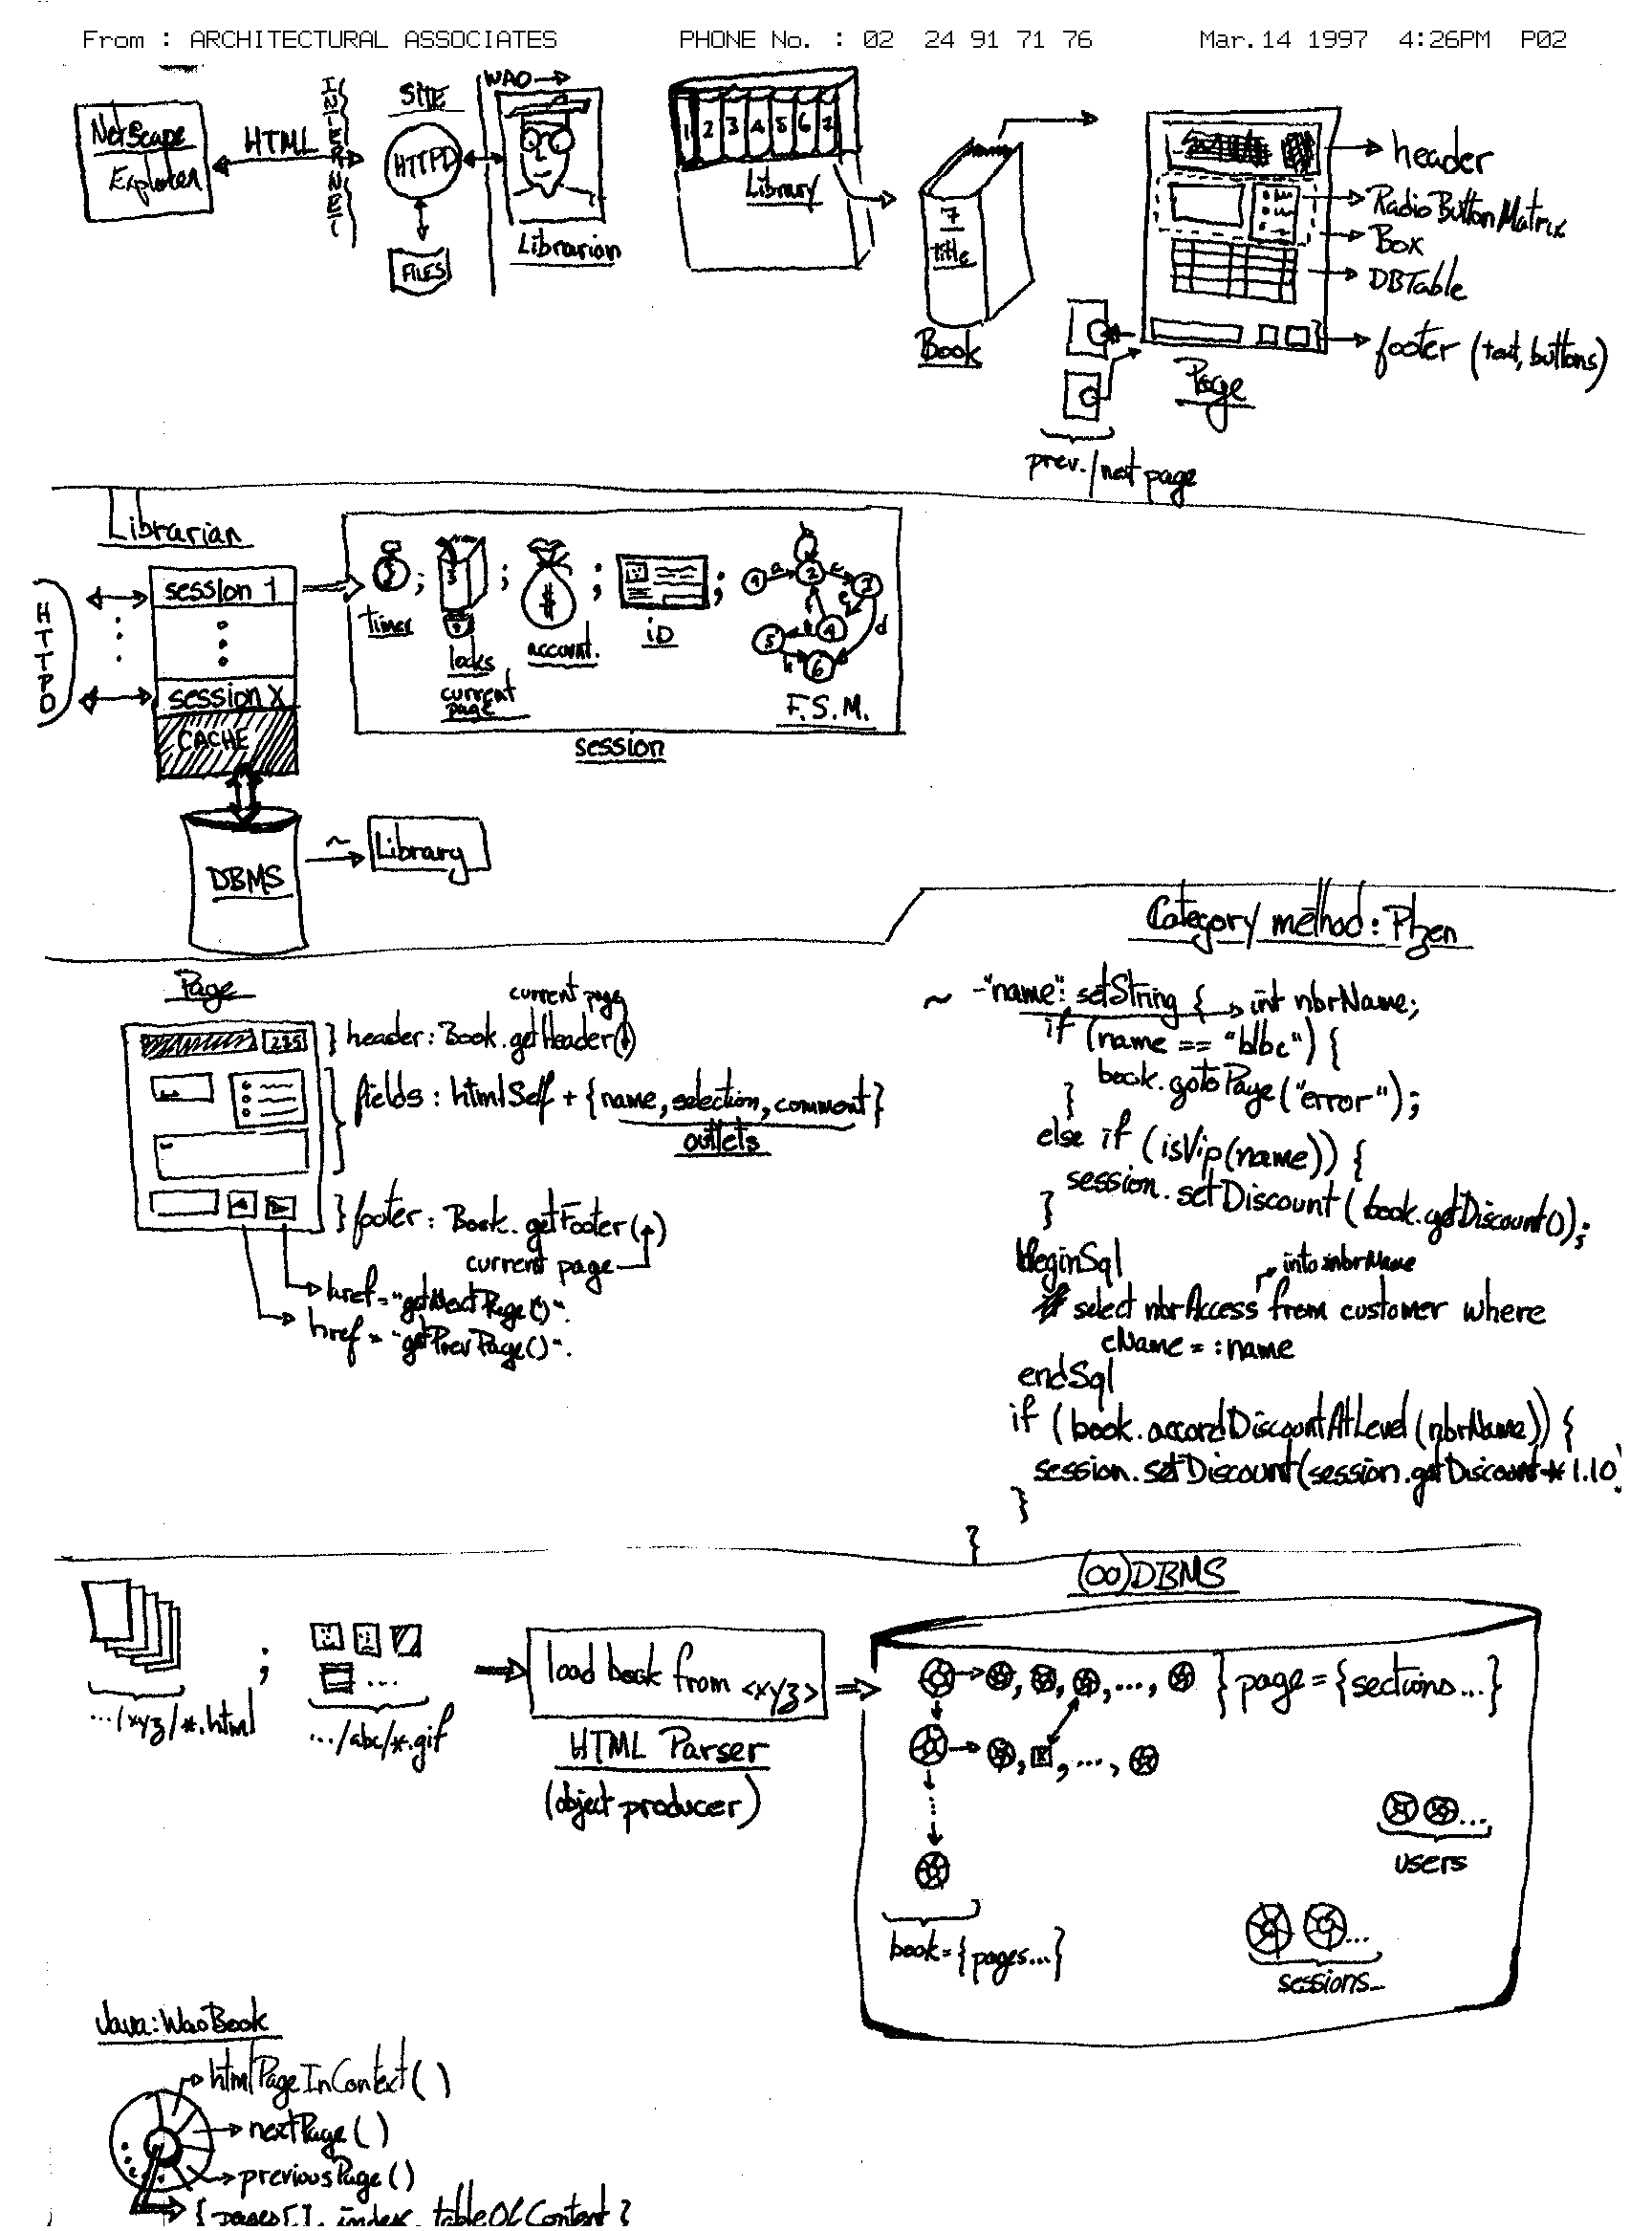 From : ARCHITECTURAL ASSOCIATES PHONE No. : 02 24 91 71 76 Mar.14 1997 4:26PM P02
NetScape
Explorer
HTML
INTERNET
SITE
HTTPD
FILES
WAO
Librarian
1 2 3 4 5 6 7
Library
7
title
Book
header
RadioButtonMatrix
Box
DBTable
footer (text, buttons)
Page
prev./next page
Librarian
HTTPD
session 1
session X
CACHE
DBMS
~
Library
timer
locks
current
page
$
account.
ID
1 a 2 c 3
5 4 d
h 6
F.S.M.
session
Page
current page
235
header: Book.getHeader()
fields: htmlSelf + {name, selection, comment}
outlets
footer: Book.getFooter()
current page
href="getNextPage()".
href = "getPrevPage()".
Category method:
~ -"name": setString { int nbrName;
if (name == "blbc") {
book.gotoPage("error");
}
else if (isVip(name)) {
session.setDiscount(book.getDiscount());
}
beginSql
into :nbrName
select nbrAccess from customer where
cName = :name
endSql
if (book.accordDiscountAtLevel(nbrName)) {
session.setDiscount(session.getDiscount*1.10
}
}
.../xyz/*.html
;
.../abc/*.gif
load book from <xyz>
HTML Parser
(object producer)
(OO)DBMS
} page = {sections...}
users
sessions
book = {pages...}
Java: WaoBook
htmlPageInContext()
nextPage()
previousPage()
{ pages[], index, tableOfContent }